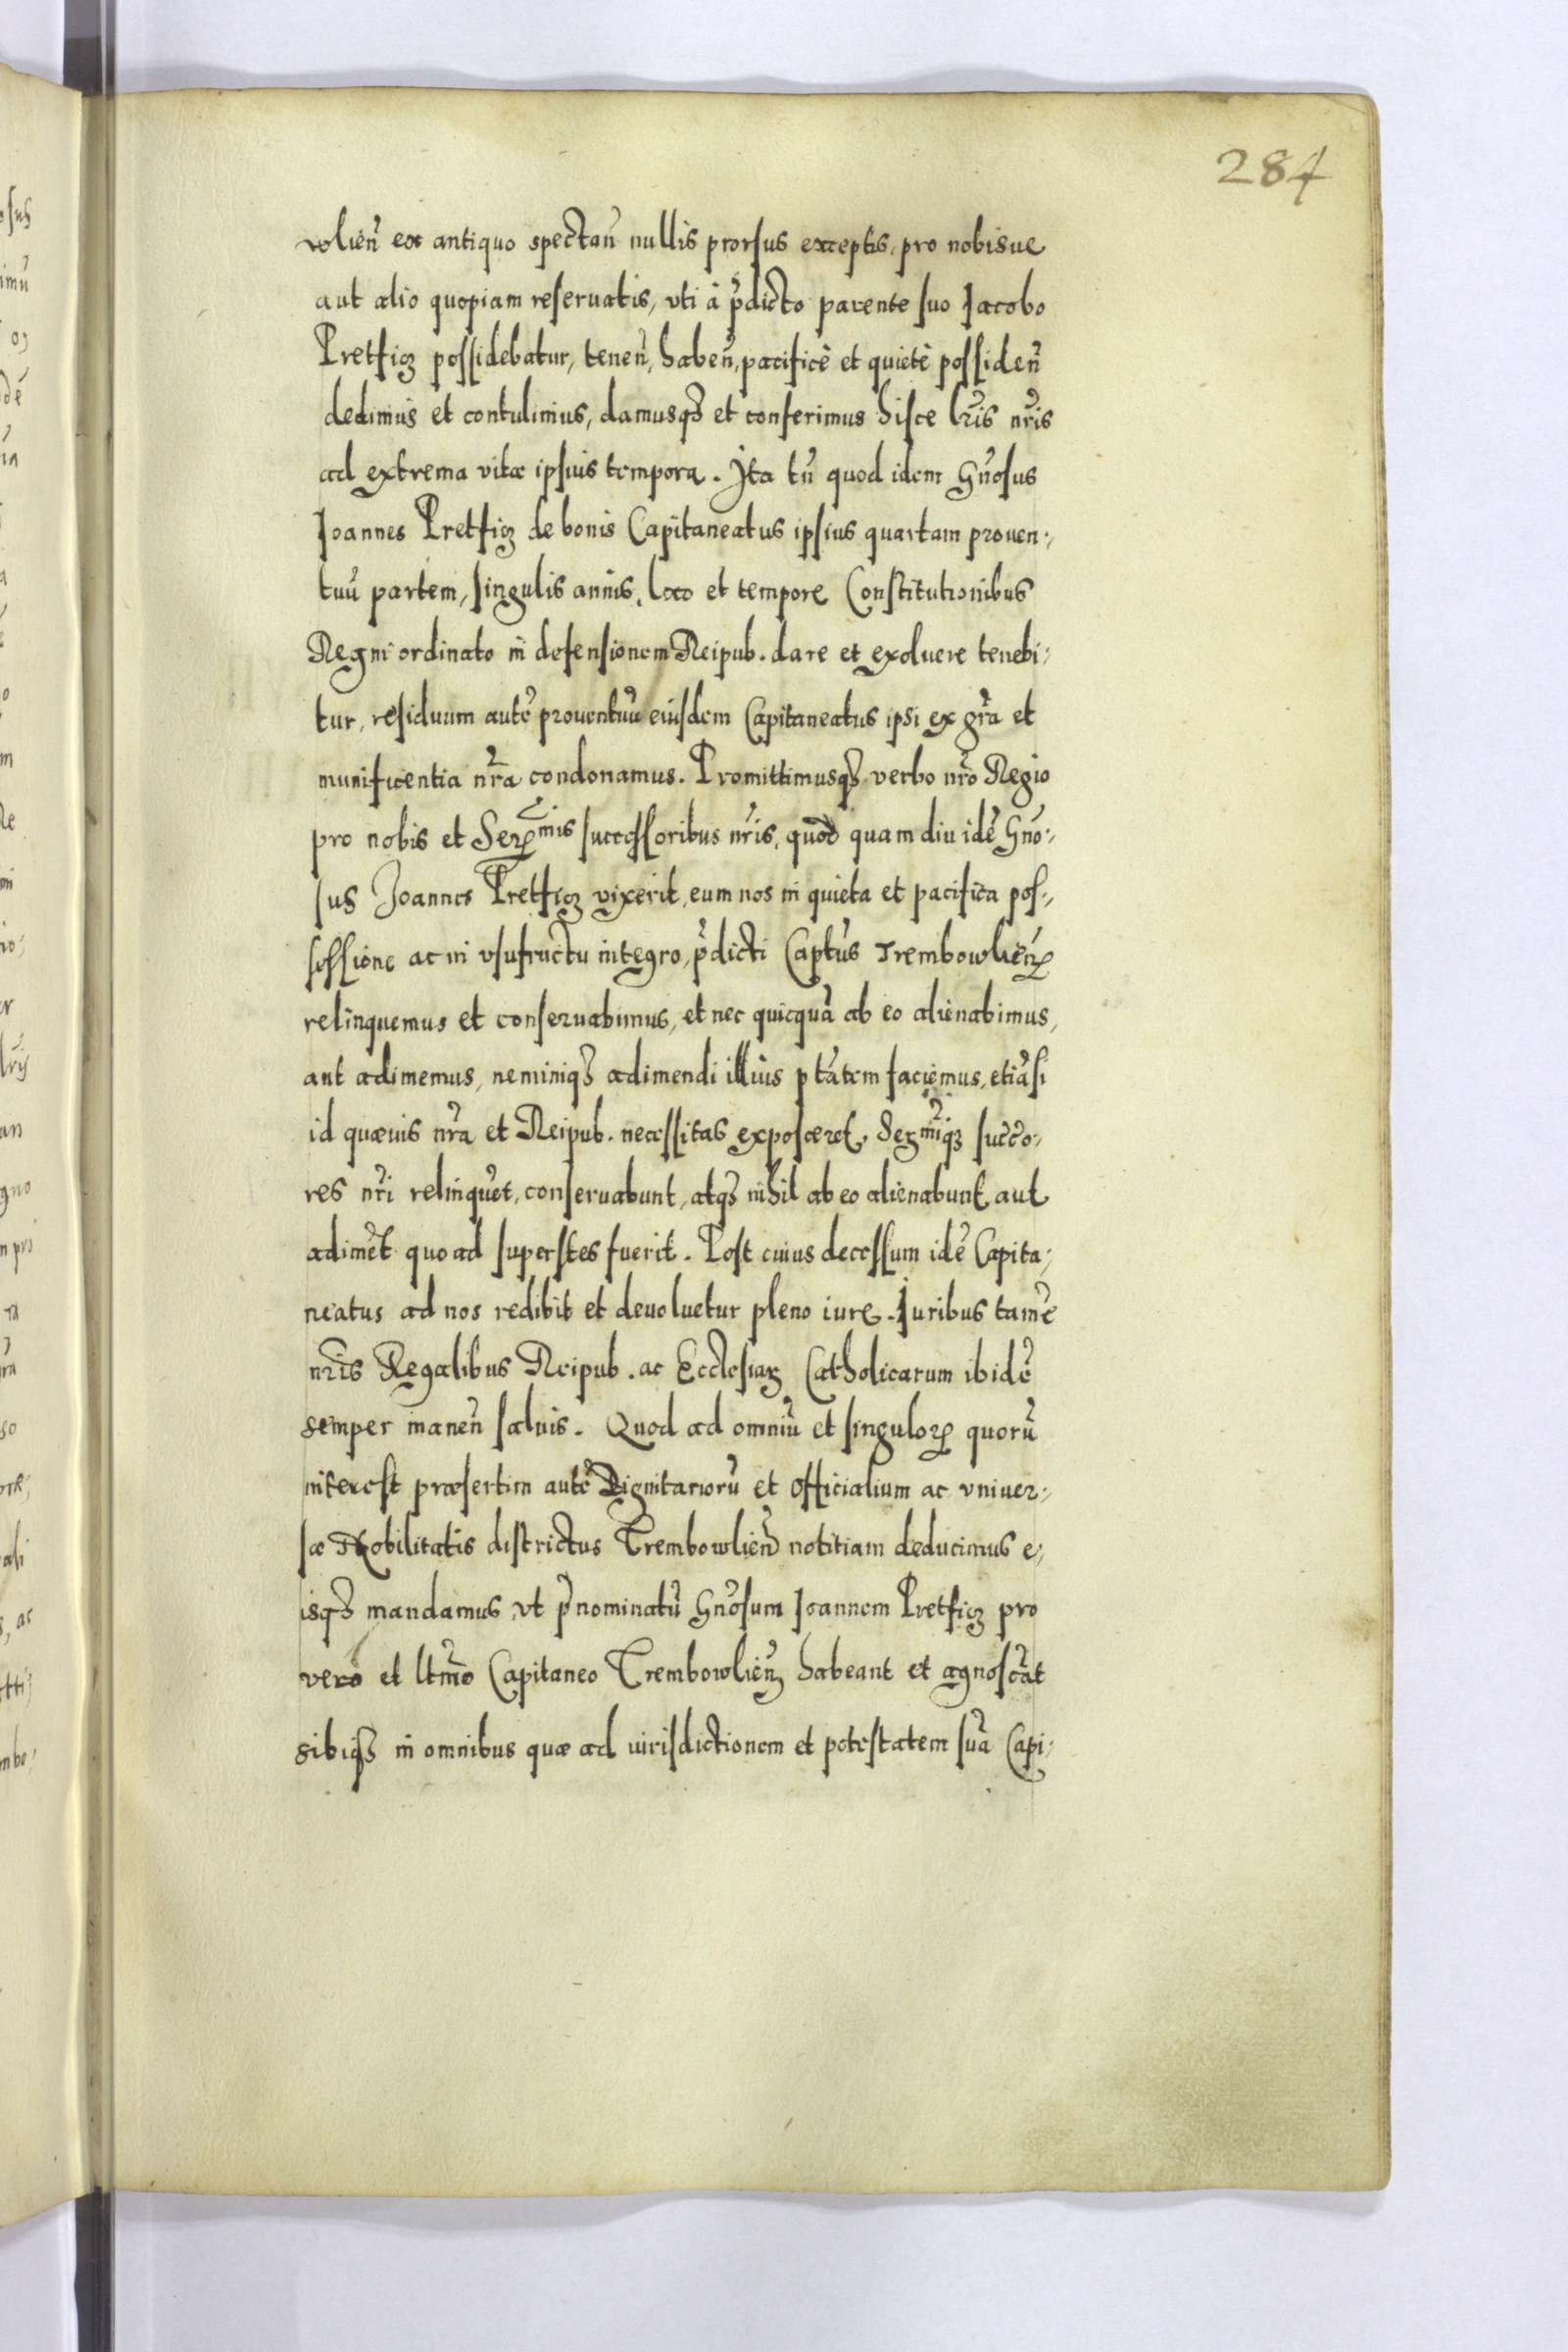 284
wlień ex antiquo spectań nullis prorsus exceptis, pro nobisue
aut alio quopiam reseruatis, vti à p̃dicto parente suo Jacobo
Pretficz possidebatur, teneñ, habeñ, pacificè et quietè possideñ
dedimus et contulimus, damusq₃ et conferimus hisce lr̃is nr̃is
ad extrema vitæ ipsius tempora. Ita tñ quod idem Gñosus
Joannes Pretficz de bonis Capitaneatus ipsius quartam prouen-
tuũ partem, singulis annis, loco et tempore Constitutionibus
Regni ordinato in defensionem Reipub. dare et exoluere tenebi-
tur, residuum autẽ prouentuũ eiusdem Capitaneatus ipsi ex gr̃a et
munificentia nr̃a condonamus. Promittimusq₃ verbo nr̃o Regio
pro nobis et Serꝫmis successoribus nr̃is, quod quam diu idẽ Gño-
sus Joannes Pretficz vixerit, eum nos in quieta et pacifica pos-
sessione ac in vsufructu integro, p̃dicti Captũs Trembowlieñ
relinquemus et conseruabimus, et nec quicquã ab eo alienabimus,
aut adimemus, neminiq₃ adimendi illius ptãtem faciemus, etiãsi
id quæuis nr̃a et Reipub. necessitas exposceret, Serꝫmiq₃ succ̃o-
res nr̃i relinquẽt, conseruabunt, atq₃ nihil ab eo alienabunt aut
adimẽt quo ad superstes fuerit. Post cuius decessum idẽ Capita-
neatus ad nos redibit et deuoluetur pleno iure. Juribus tamẽ
nr̃is Regalibus Reipub. ac Ecclesiaꝝ Catholicarum ibidẽ
semper maneñ saluis. Quod ad omniũ et singuloꝝ quorũ
interest præsertim autẽ Dignitariorũ et Officialium ac vniuer-
sæ Nobilitatis districtus Trembowlieñ notitiam deducimus e-
isq₃ mandamus, vt p̃nominatũ Gñosum Joannem Pretficz pro
vero et ltm̃o Capitaneo Trembowlieñ habeant et agnoscãt
sibiq₃ in omnibus quæ ad iurisdictionem et potestatem suã Capi-